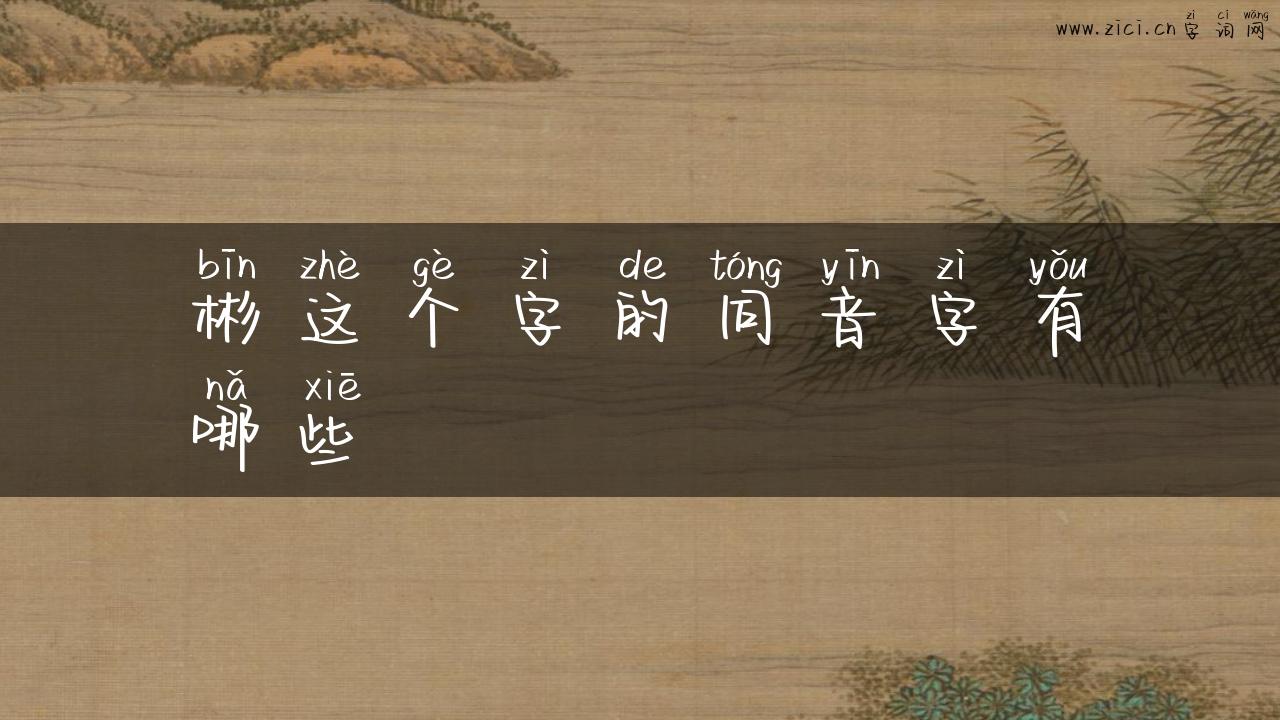 www.zici.cn zì cí wǎng
字词网
bīn zhè gè zì de tóng yīn zì yǒu
彬这个字的同音字有
nǎ xiē
哪些